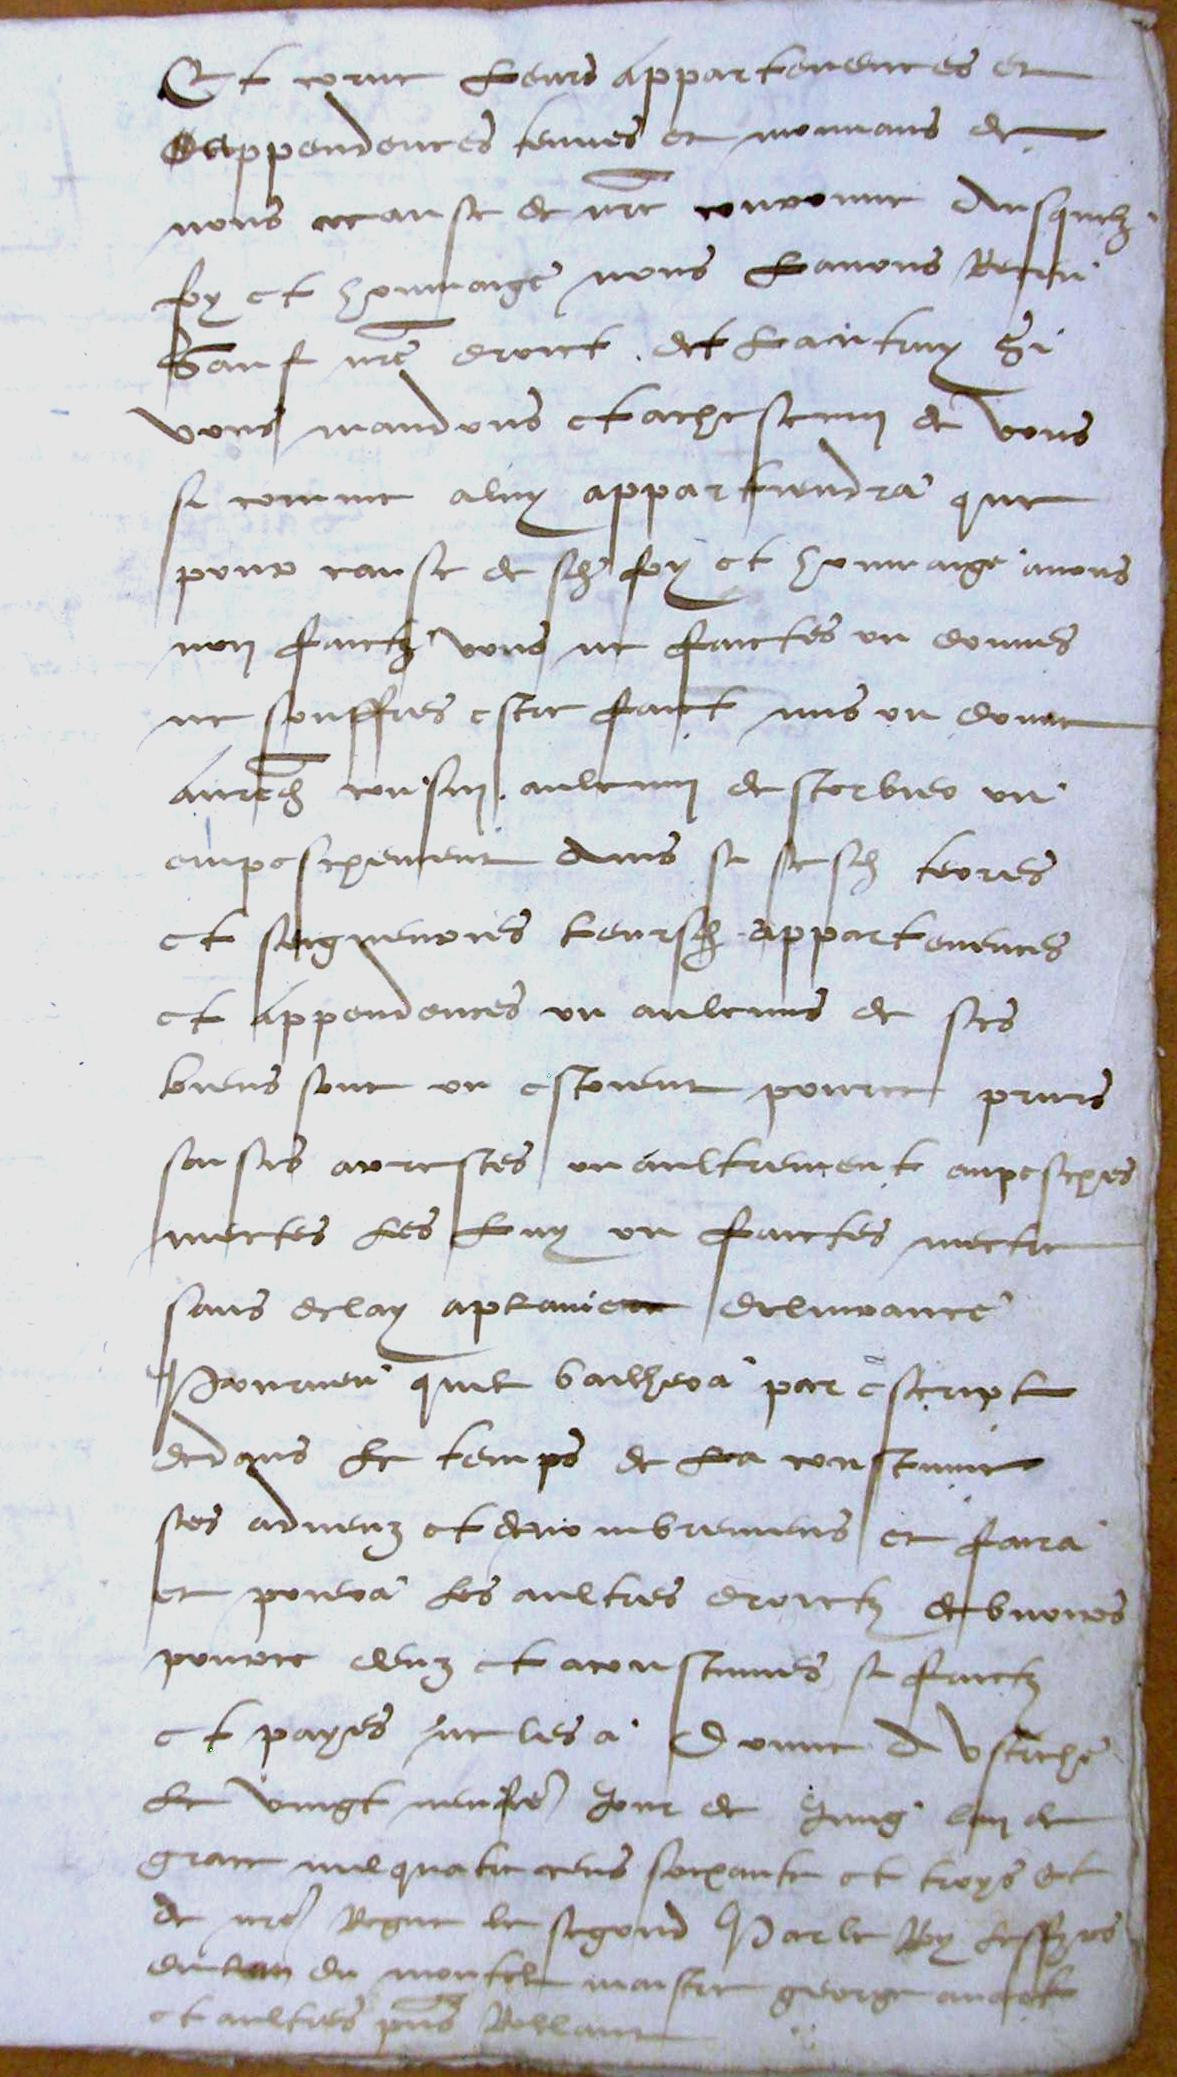 Et toute leurs appartenences et
appendences tenues et mouvans de
nous a cause de nre couronne Ausquelz
foy et hommaige nous lavons Receu
Sauf nre droict et lautruy Si
vous mandons et achescun de vous
si comme aluy appartiendra que
pour cause desdz foy et hommaige anous
non faictz vous ne faictes ou donnes
ne souffres estre faict mis ou donne
audict conseu aulcun destorbier ou
empeschement Ains si sesdz terres
et seigneuries leursdz appartenences
et appendences ou aulcuns de ses
biens sont ou estoient pource prins
saisis arrestes ou aultrement empesches
mectes les luy ou faictes mectre
sans delay aplaine delivrance
Pourveu quil bailhera par escript
dedans le temps de la coustume
ses adveuz et denombremens et faira
et poiera les aultres droictz debvoirs
pource deuz et acoustumes si faictz
et payes ne les a Donne A Ustiche
le vingt neufie jour de Jung lan de
grace mil quatre cens soixante et troys Et
de nre Regne le segond Par le Roy Le sire
du lau du montel maistre george avart
et aultres pns Rollant